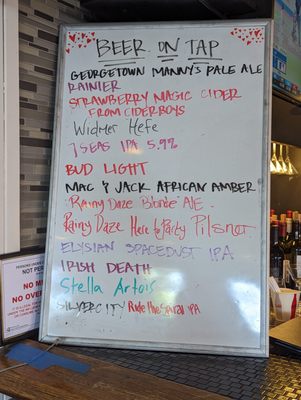 BEER ON TAP
GEORGETOWN MANNY'S PALE ALE
RAINIER
STRAWBERRY MAGIC CIDER
FROM CIDERBOYS
WIDMER HEFE
7 SEAS IPA 5.9%
BUD LIGHT
MAC & JACK AFRICAN AMBER
Rainy Daze Blonde ALE
Rainy Daze Here to Party Pilsner
ELYSIAN SPACEDUST IPA
IRISH DEATH
Stella Artois
SILVER CITY Ride the Spiral IPA
NO M
NO OVER